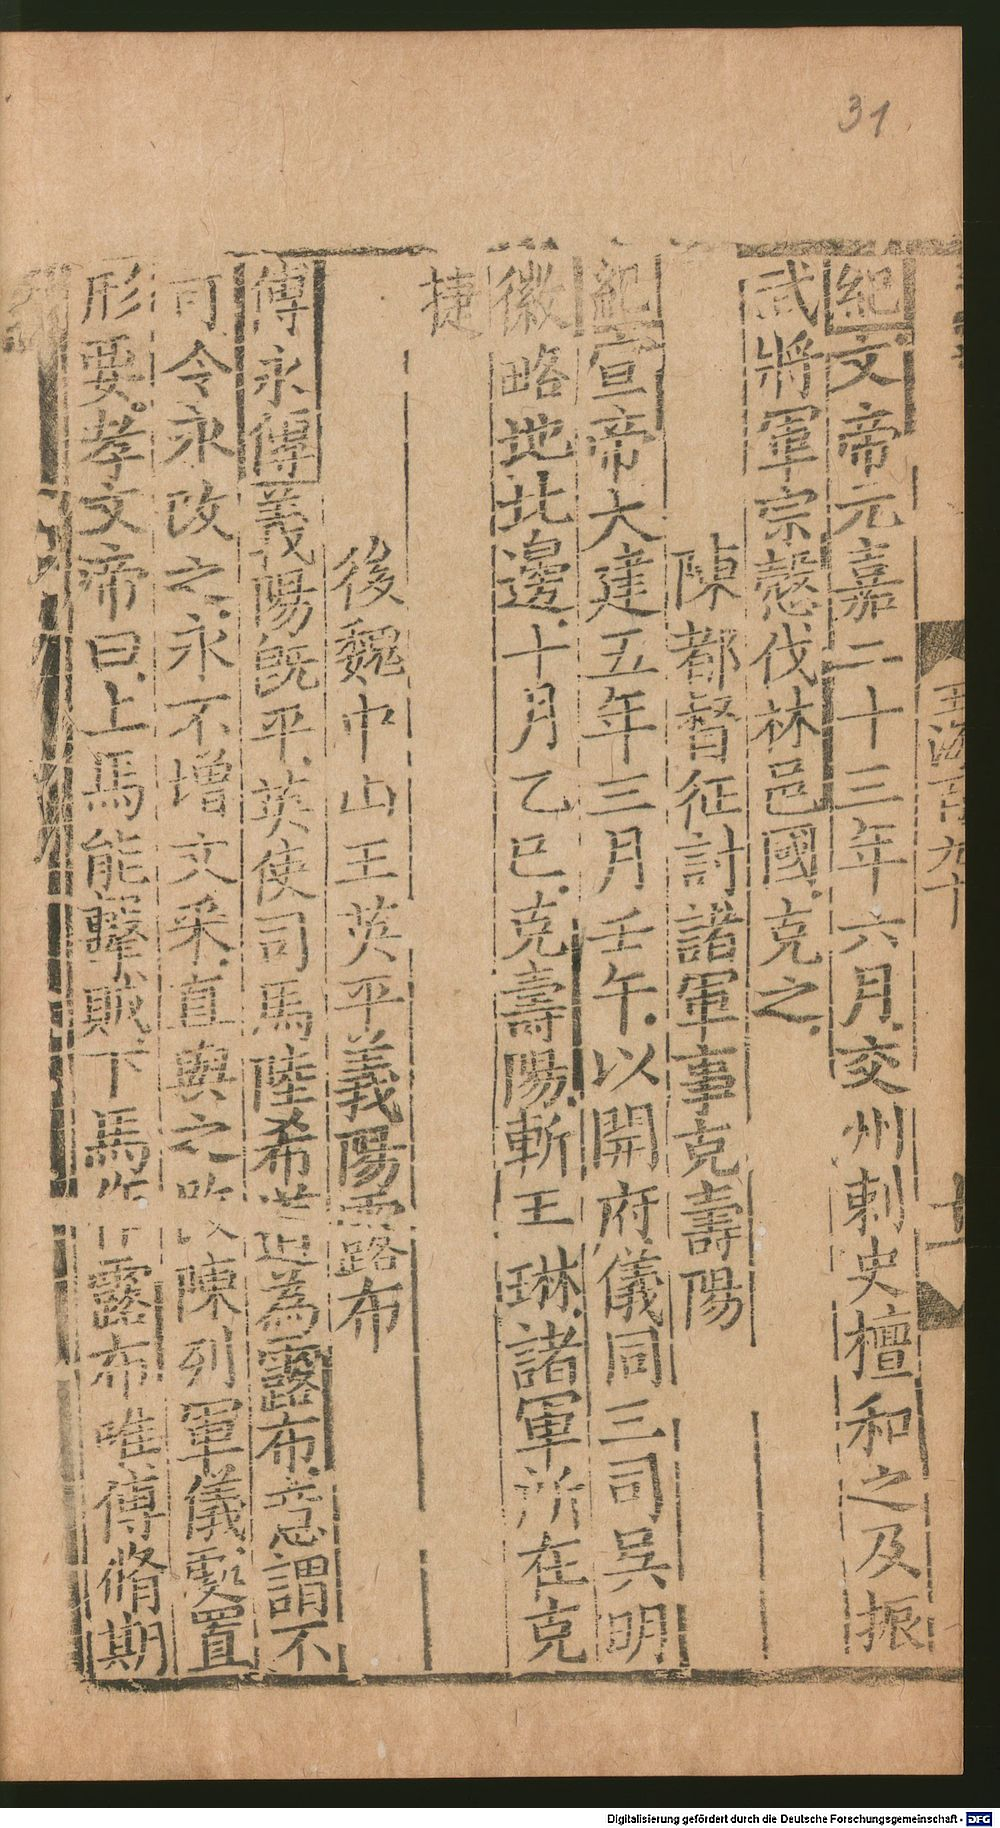 31
玉海百九十
十
紀文帝元嘉二十三年六月交州刺史檀和之及振
武將軍宗慤伐林邑國克之
陳都督征討諸軍事克壽陽
紀宣帝大建五年三月壬午以開府儀同三司吳明
徹略地北邊十月乙巳克壽陽斬王琳諸軍所在克
捷
後魏中山王英平義陽露布
傅永傳義陽既平英使司馬陸希道為露布意謂不
可令永改之永不增文采直與之改陳列軍儀處置
形要孝文帝曰上馬能擊賊下馬作露布唯傅脩期
Digitalisierung gefördert durch die Deutsche Forschungsgemeinschaft - DFG